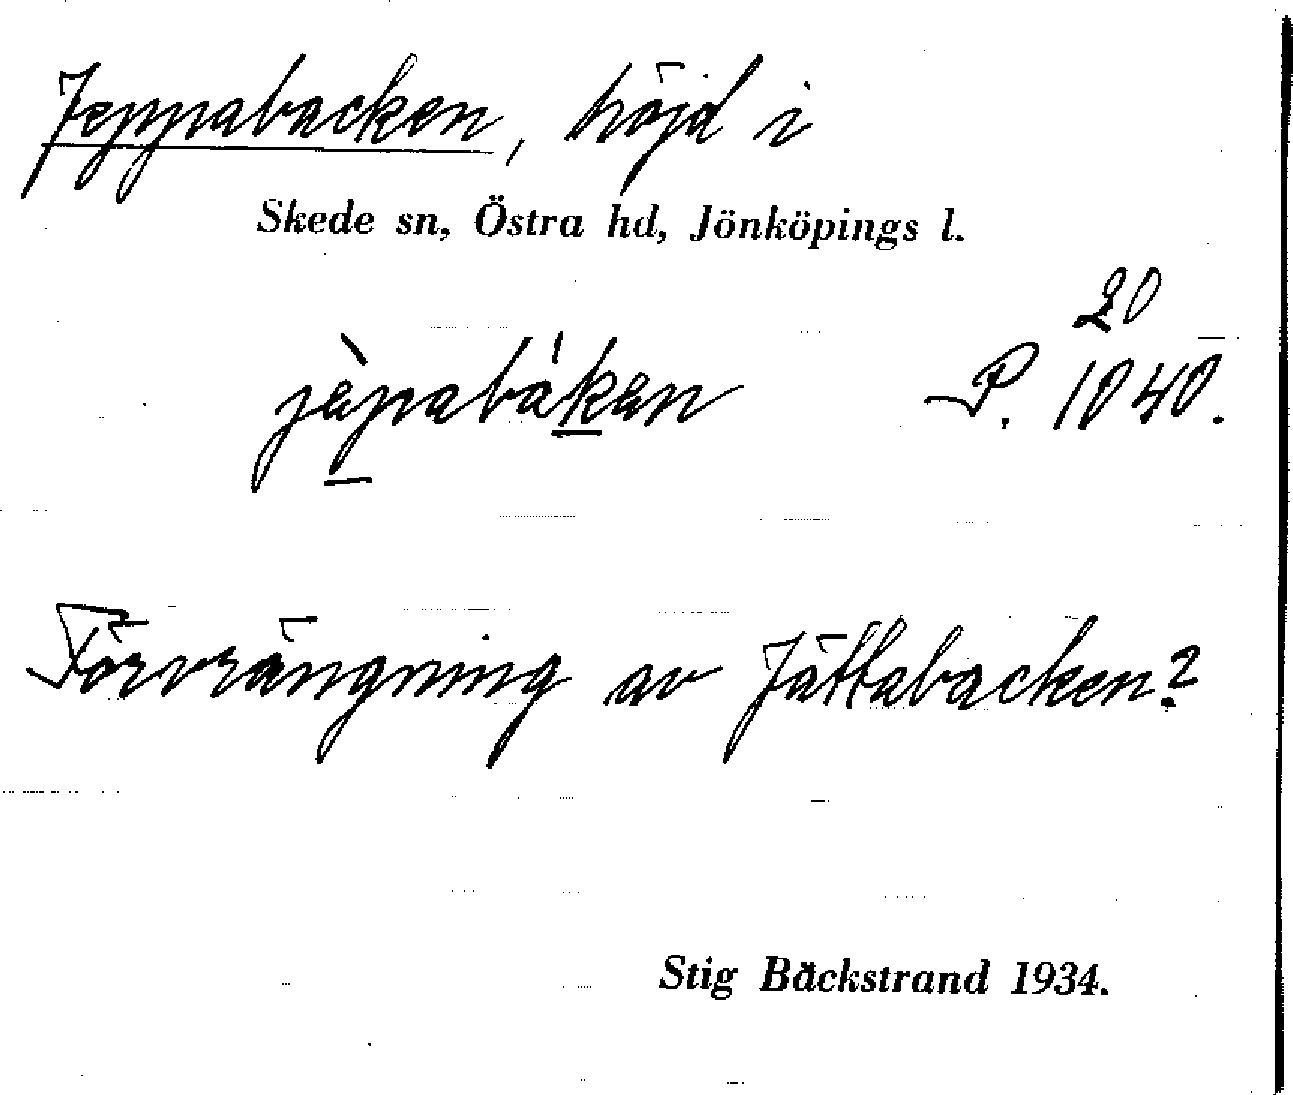 Jeppabacken, höjd i
Skede sn, Östra hd, Jönköpings l.
20
jàpabákan P. 1040.
Förvrängning av Jättabacken?
Stig Bäckstrand 1934.